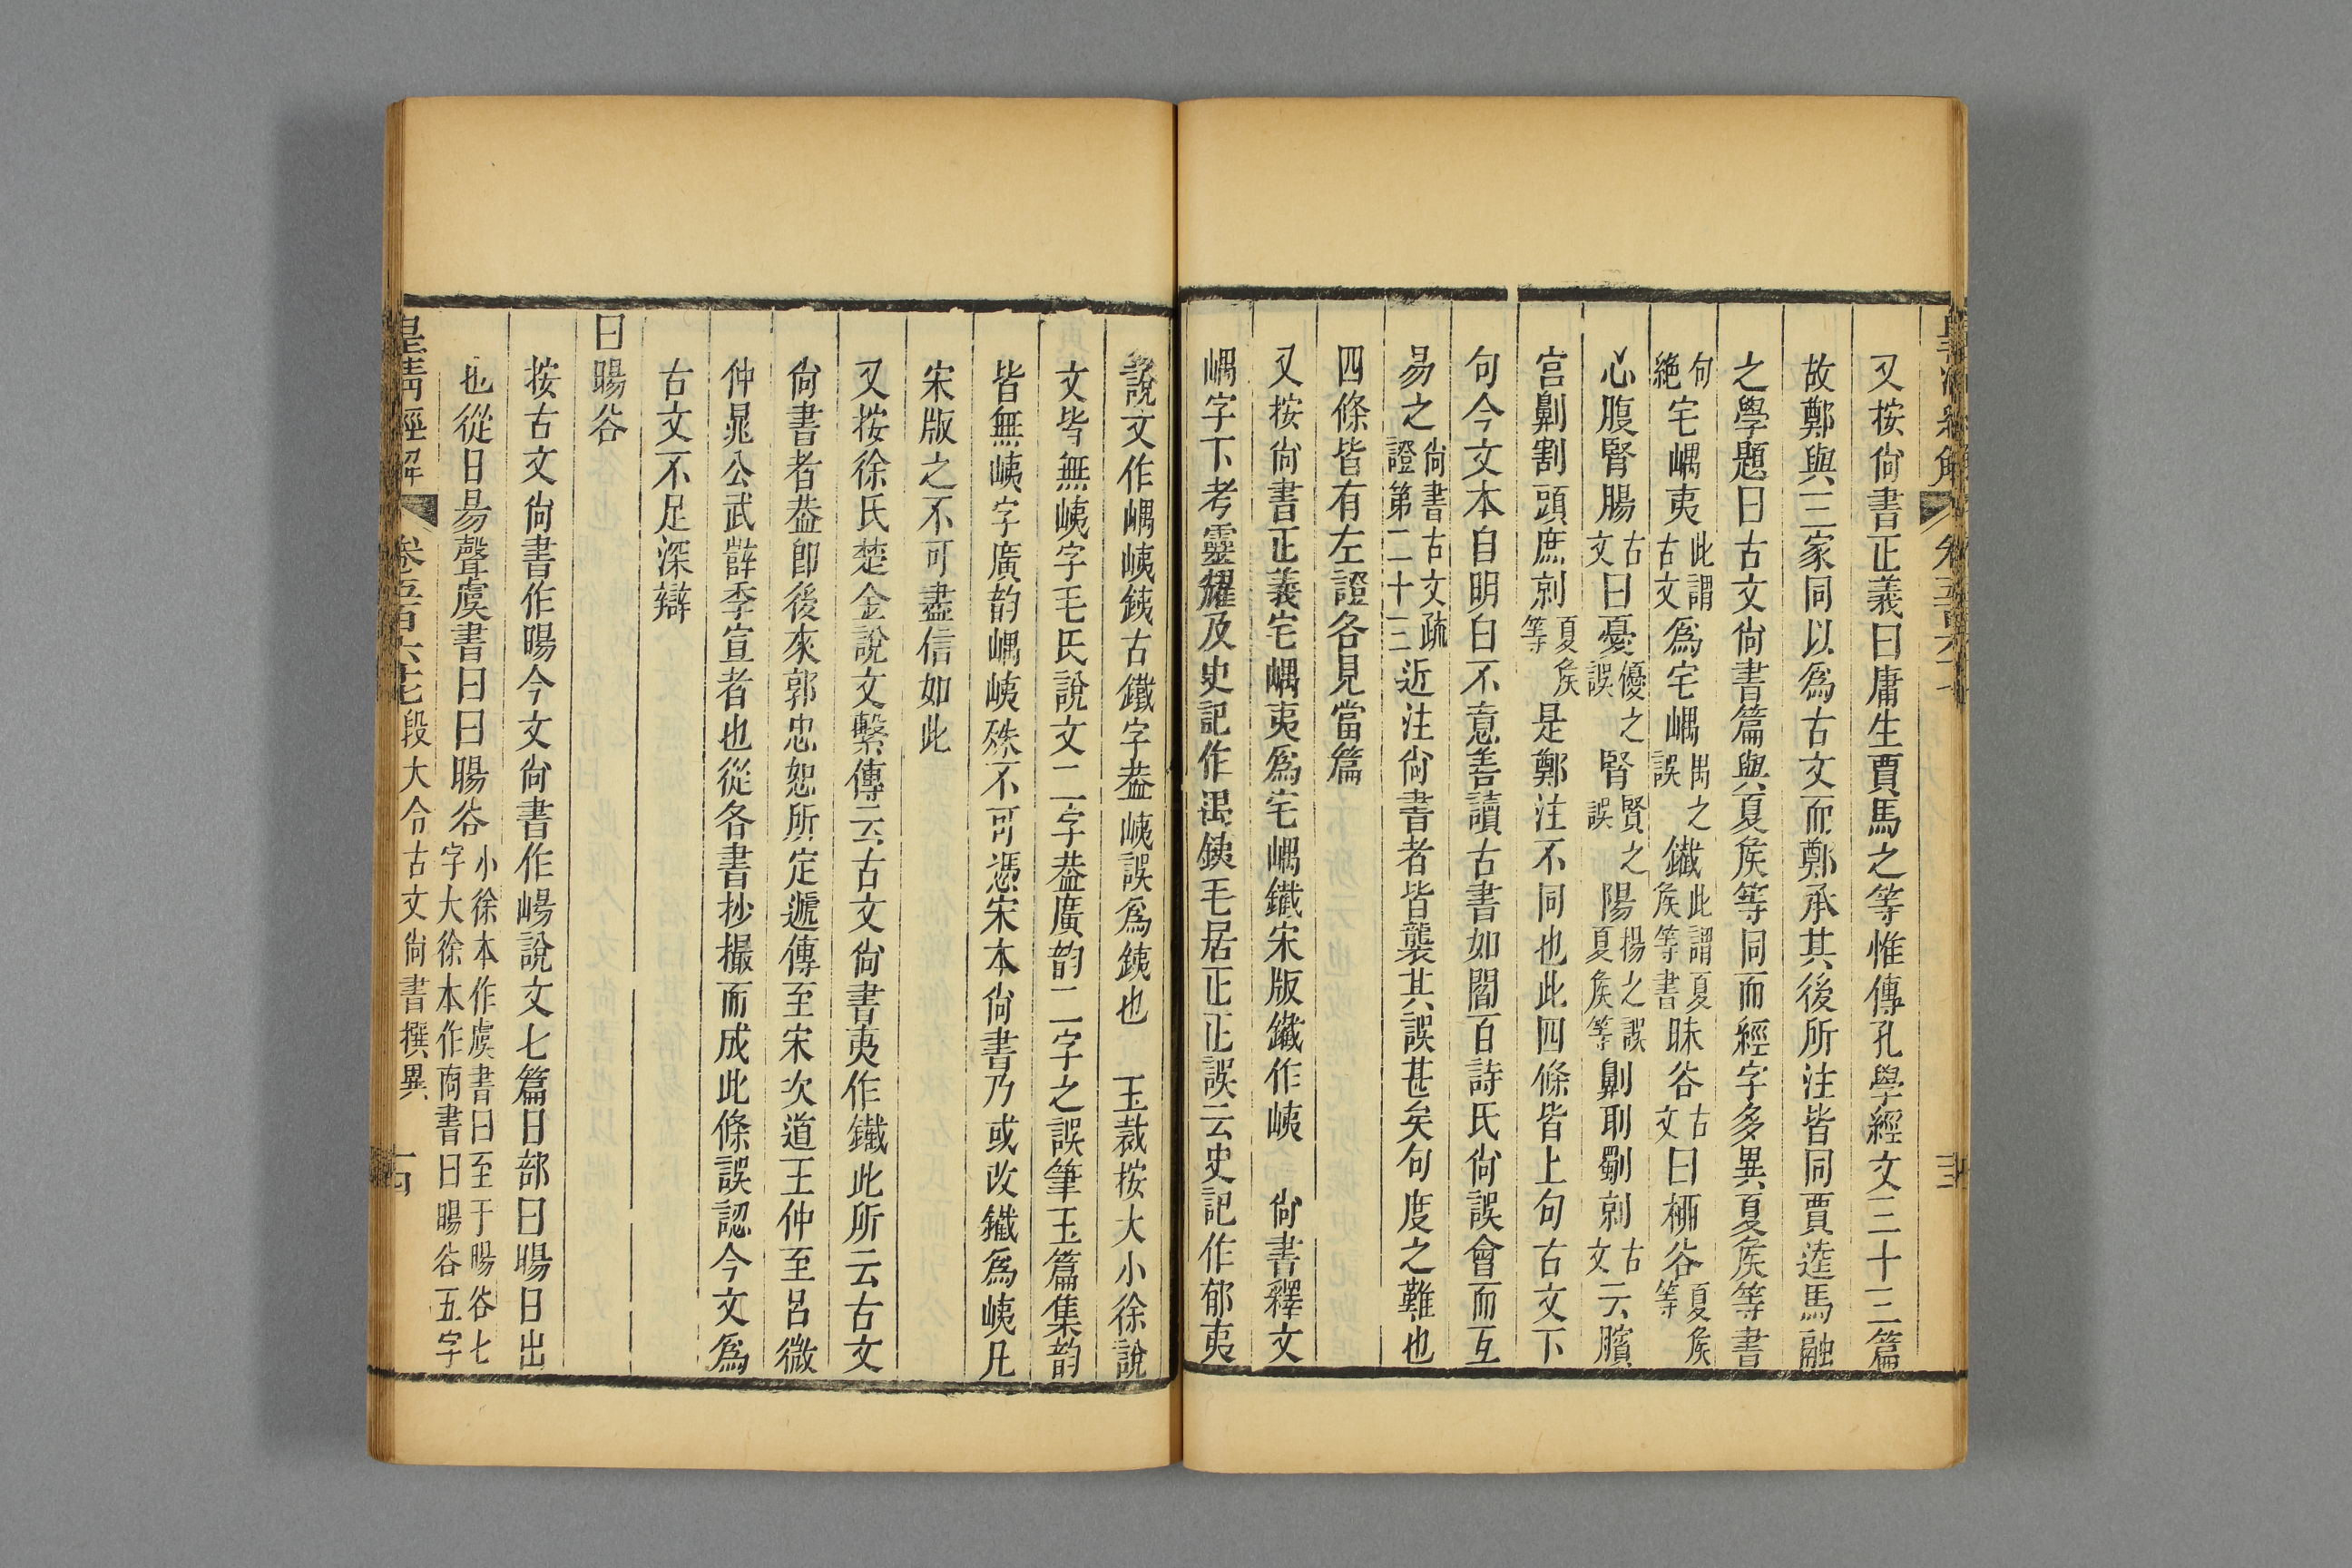 又按尙書正義曰庸生賈馬之等惟傳孔學經文三十三篇
故鄭與三家同以爲古文而鄭承其後所注皆同賈逵馬融
之學題曰古文尙書篇與夏矦等同而經字多異夏矦等書
句絶宅嵎夷此謂古文爲宅嵎禺之誤鐵此謂夏矦等書昧谷古文曰桺谷夏矦等
心腹腎腸古文曰憂優之誤腎賢之誤陽揚之誤夏矦等劓刵劅剠古文云臏
宫劓割頭庶剠夏矦等是鄭注不同也此四條皆上句古文下
句今文本自明白不意善讀古書如閻百詩氏尙誤會而互
易之尙書古文疏證第二十三近注尙書者皆襲其誤甚矣句度之難也
四條皆有左證各見當篇
又按尙書正義宅嵎夷爲宅嵎鐵宋版鐵作峓　尙書釋文
嵎字下考靈耀及史記作禺銕毛居正正誤云史記作郁夷
說文作嵎峓銕古鐵字葢峓誤爲銕也　玉裁按大小徐說
文皆無峓字毛氏說文二字葢廣韵二字之誤筆玉篇集韵
皆無峓字廣韵嵎峓殊不可憑宋本尙書乃或改鐵爲峓凡
宋版之不可盡信如此
又按徐氏楚金說文繫傳云古文尙書夷作鐵此所云古文
尙書者葢卽後來郭忠恕所定遞傳至宋次道王仲至呂微
仲晁公武薛季宣者也從各書抄撮而成此條誤認今文爲
古文不足深辯
曰暘谷
按古文尙書作暘今文尙書作崵說文七篇日部曰暘日出
也從日昜聲虞書曰曰暘谷小徐本作虞書曰至于暘谷七字大徐本作商書曰暘谷五字
皇淸經解　卷五百六十七　段大令古文尙書撰異　十四